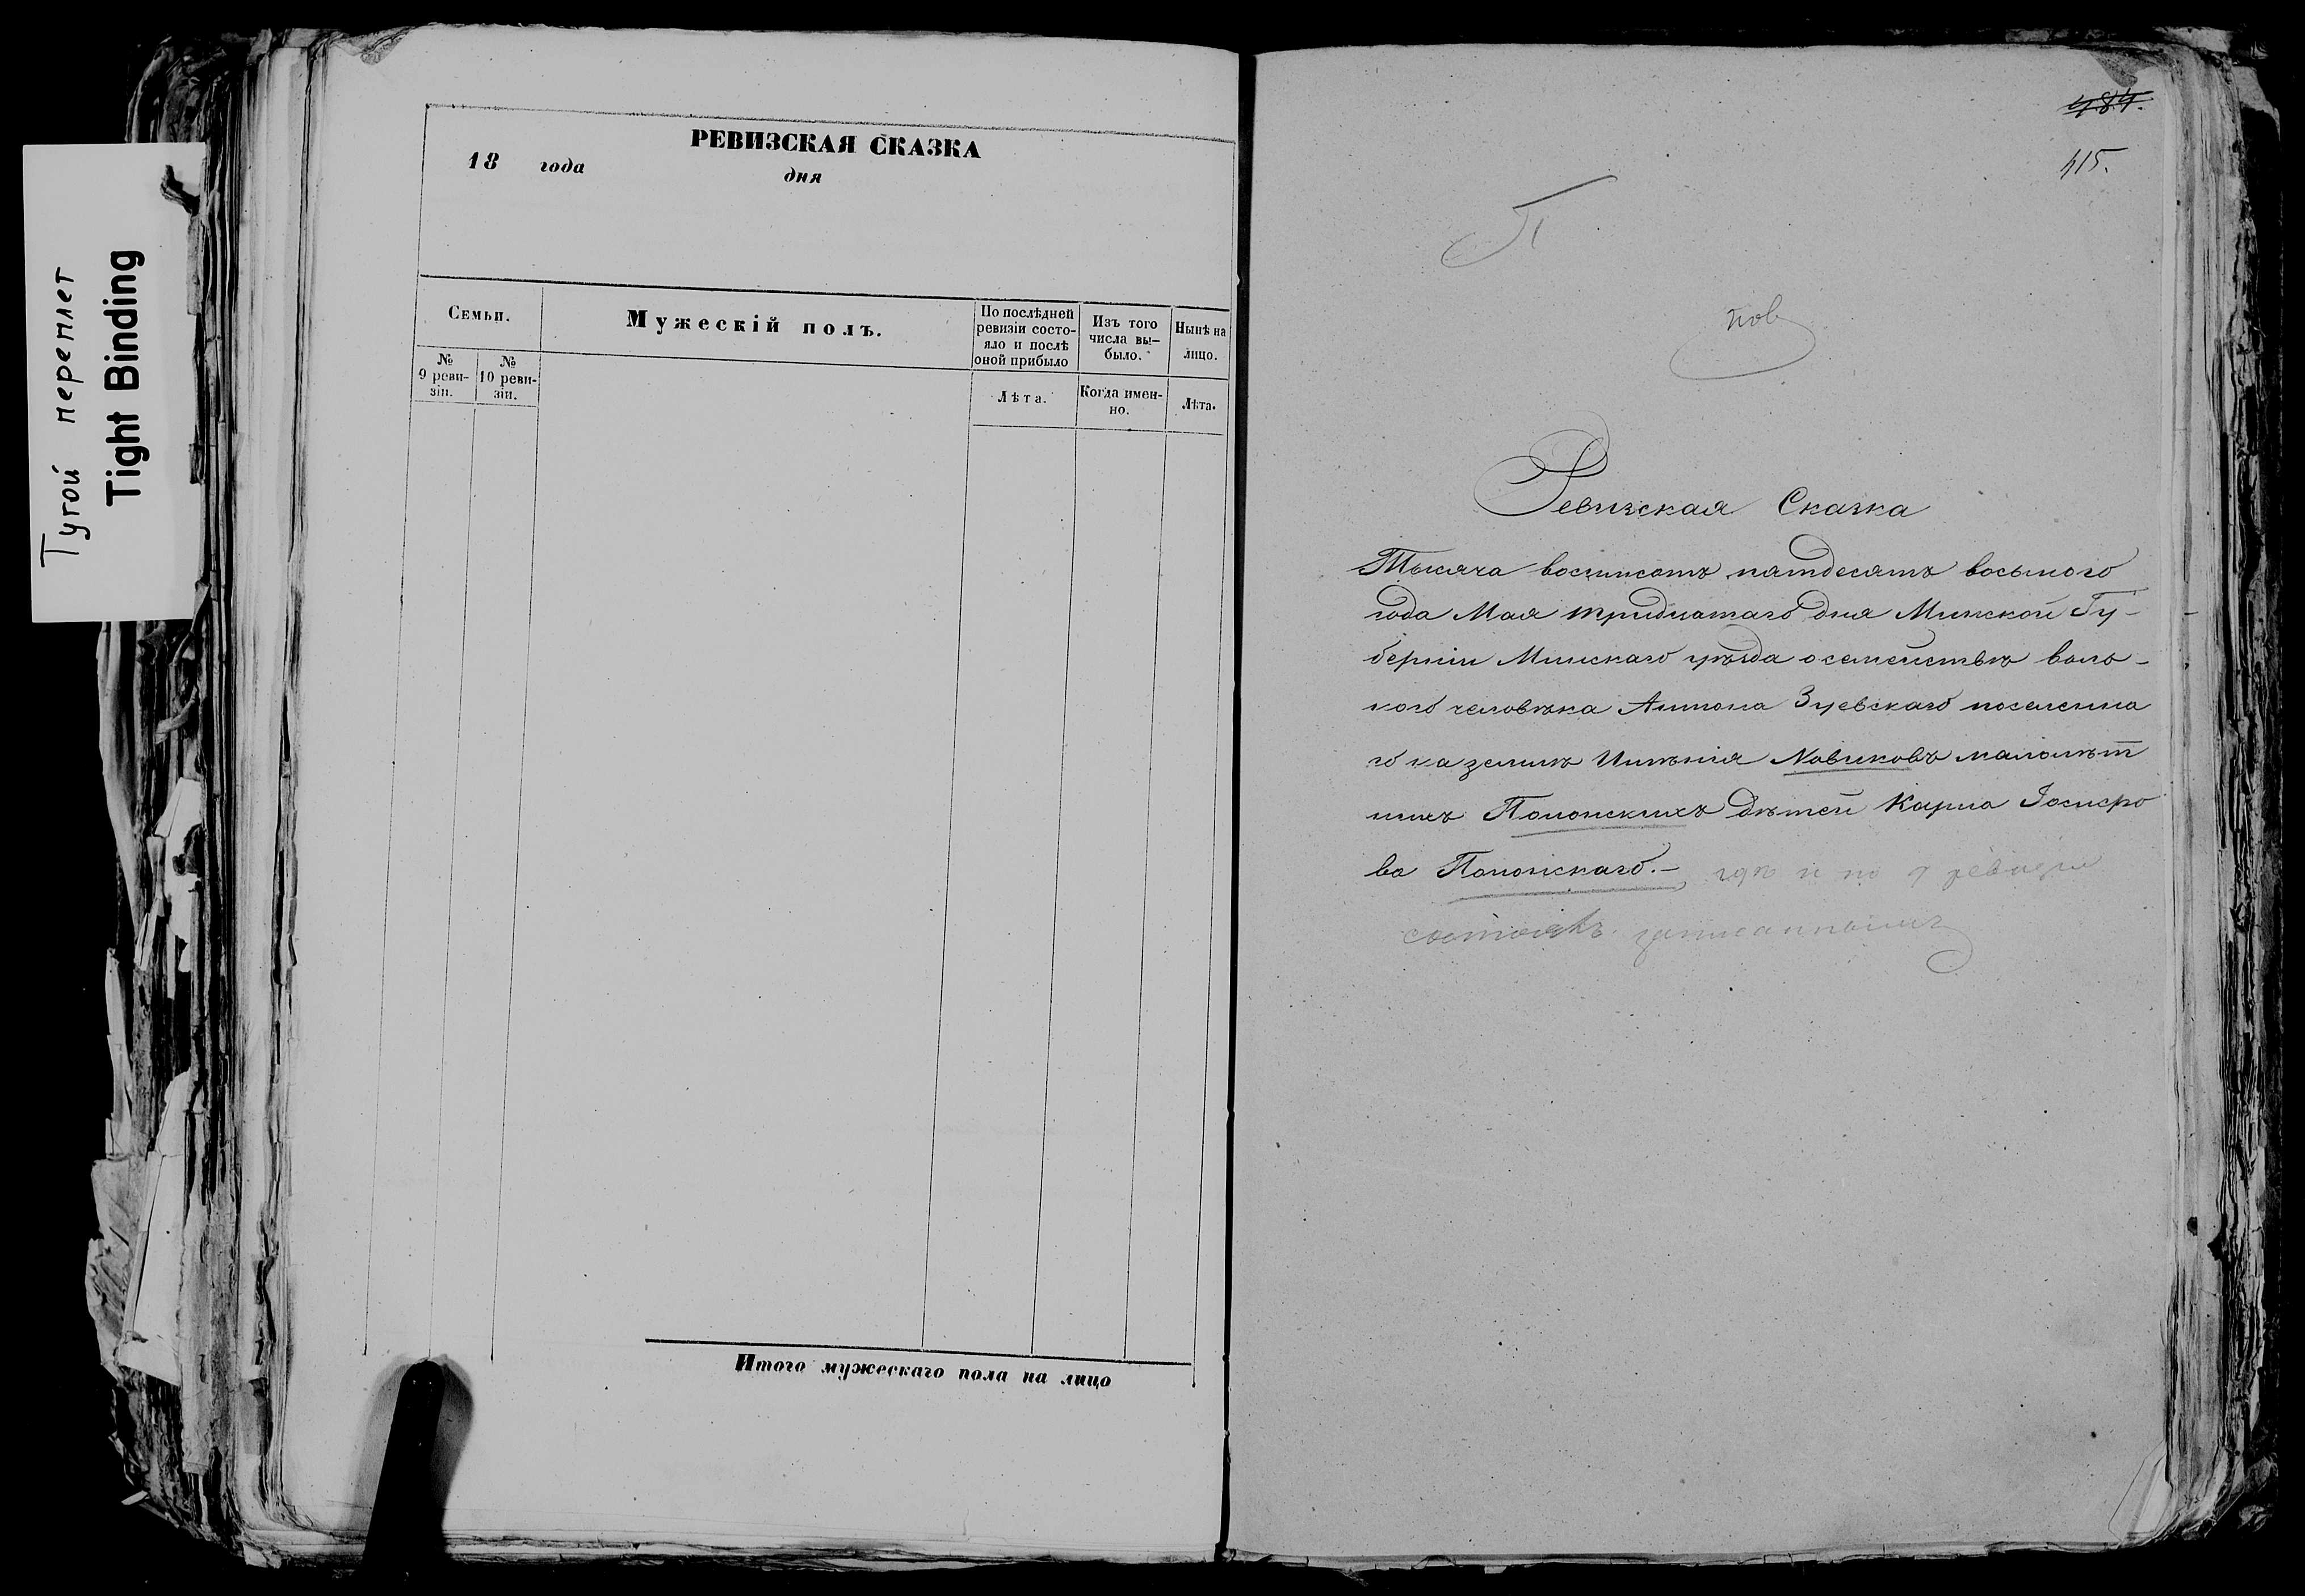 Тугой переплет
Tight Binding
РЕВИЗСКАЯ СКАЗКА
18 года дня
Семьи.
Мужескій полъ.
По послѣдней ревизіи состо-
яло и послѣ оной прибыло
Изъ того числа вы-
было.
Нынѣ на лицо.
№ 9 реви-
зіи.
№ 10 реви-
зіи.
Лѣта.
Когда имен-
но.
Лѣта.
Итого мужескаго пола на лицо
484.
415.
П
нов
Ревизская Сказка
Тысяча восимсотъ пятдесятъ восьмого
года Мая тридцатаго дня Минской Гу-
берніи Минскаго уѣзда о семействѣ воль-
ного человѣка Антона Зуевскаго поселенна
го на землѣ Имѣнія Новиковъ малолѣт
нихъ Полонскихъ дѣтей Карла Іосифо
ва Полонскаго.— гдѣ и по 9 ревизіи
состоялъ записаннымъ